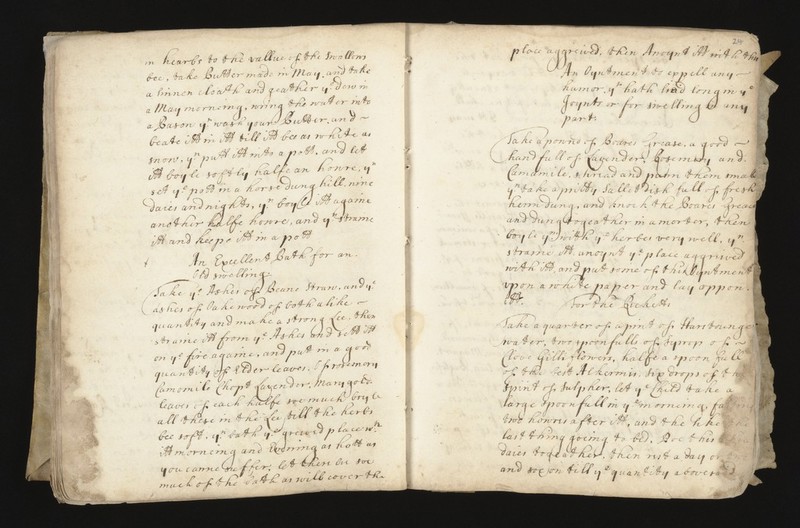 in hearbs to the vallue of the swollen
bee, take Butter made in May, and take
a linnen cloath and geather ye dew in
a May morneing, wring the water into
a Bason yn wash your Butter, and
beate itt in itt till itt bee as white as
snow, yn putt itt into a pott, and let
itt boyle softly halfe an howre, yn
set ye pott in a horse dung hill, nine
daies and nights, yn boyle itt againe
another halfe howre, and yn straine
itt and keepe itt in a pott
An Excellent Bath for an
old swelling
Take ye Ashes of Beane straw, and ye
ashes of Oake wood of both alike
quantity and make a strong Lee, then
straine itt from ye Ashes and sett itt
on ye fire againe, and put in a good
quantity of Elder leaves, of rosemary
Camomile Chopt Lavender, Marigold
leaves of each halfe soe much boyle
all these in the Lee till the herbs
bee soft, yn bath ye greived place wth
itt morneing and Evening as hott as
you canne suffer, let there be soe
much of the bath as will cover the
place aggreived, then Anoynt itt with this
An Oyntment to expell any
humor yt hath lied long in ye
Joynts or for swelling in any
part
Take a pownd of Boares Grease, a good
handfull of Lavender, Rosemary and
Camamile, shred and putt them
yn take a pritty sallet dish full of fresh
henn dung, and knock the Boares Grease
and dung togeather in a morter, then
boyle ym with ye herbes very well, yn
straine itt, anoynt ye place aggreived
with itt, and put some of this Oyntment
upon a white paper and lay uppon
itt For the Ricketts
Take a quarter of a pint of Hartstonge
water, two spoonfulls of syrop of
Clove Gilliflowers, halfe a spoonfull
of the Alkermis, six drops of
spirit of sulpher, let ye Child take a
large spoonfull in ye morneing
two howres after itt, and the like
last thing goeing to bed, Doe this
daies togeather, then rest a day or
and soe on till ye quantity above